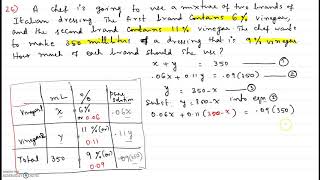 25) A chef is going to use a mixture of two brands of
Italian dressing. The first brand contains 6% vinegar,
and the second brand contains 11% vinegar. The chef wants
to make 350 milliliters of a dressing that is 9% vinegar.
How much of each brand should she use?
x + y = 350 — ①
.06x + 0.11y = .09(350) — ②
y = 350-x — ③
Subst. y = 350-x into eqn ②
0.06x + 0.11(350-x) = .09(350)
mL % Pure solution
Vinegar1 x 6% (or) 0.06 .06x
Vinegar2 y 11% (or) 0.11 .11y
Total 350 9% (or) 0.09 .09(350)